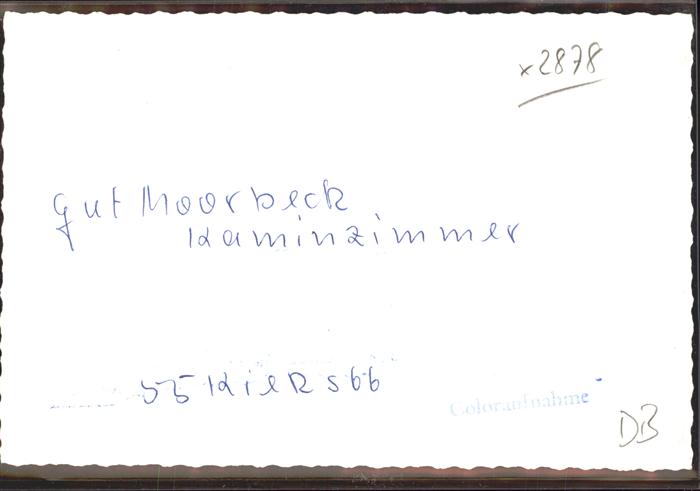 x2878
Gut Moorbeck
Kaminzimmer
Coloraufnahme
DB